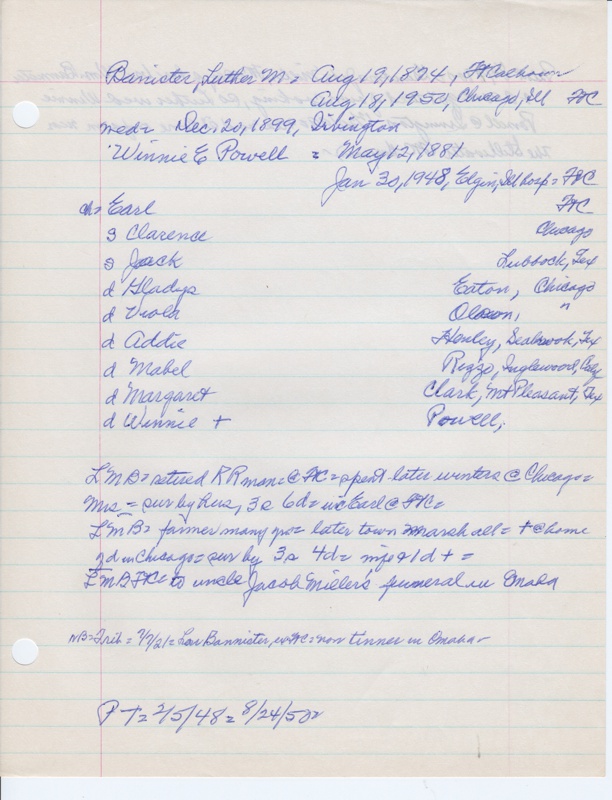 Banister, Luther M = Aug 19, 1874, Ft Calhoun
Aug 18, 1950, Chicago, Ill FtC
wed = Dec. 20, 1899, Irvington
Winnie E Powell = May 12, 1881
Jan 30, 1948, Elgin, Ill hosp = FtC
ch = Earl FtC
s Clarence Chicago
s Jack Lubbock, Tex
d Gladys Eaton, Chicago
d Viola Olson, "
d Addie Henley, Seabrook, Tex
d Mabel Riggo, Inglewood, Calif
d Margaret Clark, Mt Pleasant, Tex
d Winnie + Powell,
LMB = retired RR man = @ FtC = spent later winters @ Chicago =
Mrs = sur by hus, 3s 6d = w Earl @ FtC =
LMB = farmer many yrs = later town marshall = + @ home
d in Chicago = sur by 3s 4d = 1d + =
LMB FtC = to uncle Jacob Miller's funeral in Omaha
NB = Trib = 7/7/21 = Lou Bannister, w FtC = now tinner in Omaha
PT = 2/5/48 = 8/24/50